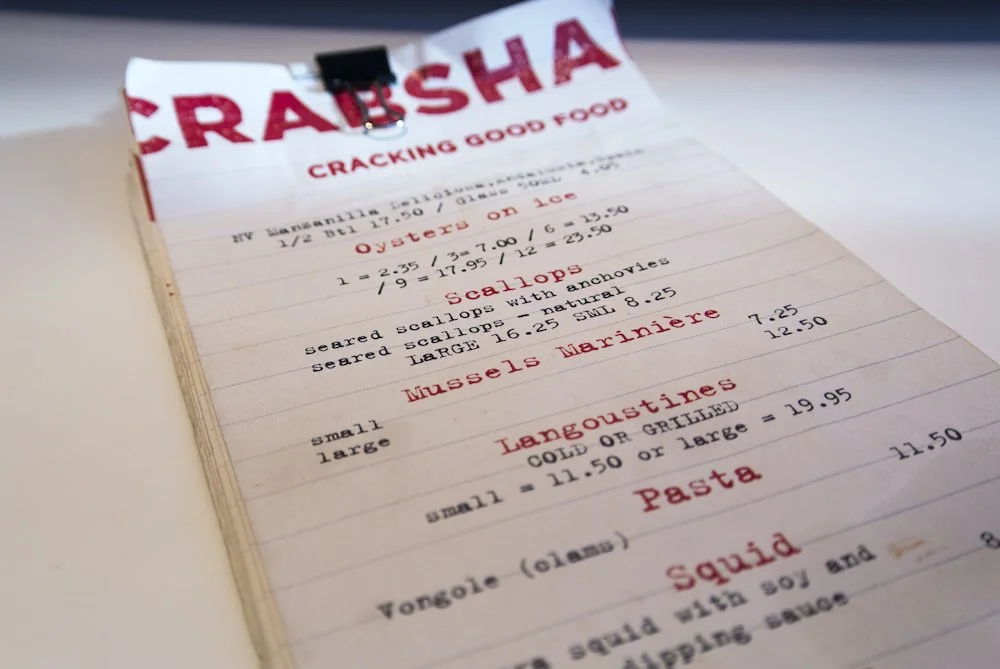 CRABSHA
CRACKING GOOD FOOD
NV Manzanilla Deliciosa, Andalusia, Spain
1/2 Btl 17.50 / Glass 50ml 4.05
Oysters on ice
1 = 2.35 / 3= 7.00 / 6 = 13.50
/ 9 = 17.95 / 12 = 23.50
Scallops
seared scallops with anchovies
seared scallops - natural
LARGE 16.25 SML 8.25
Mussels Marinière
small 7.25
large 12.50
Langoustines
COLD OR GRILLED
small = 11.50 or large = 19.95
Pasta
Vongole (clams) 11.50
Squid
squid with soy and 8
dipping sauce